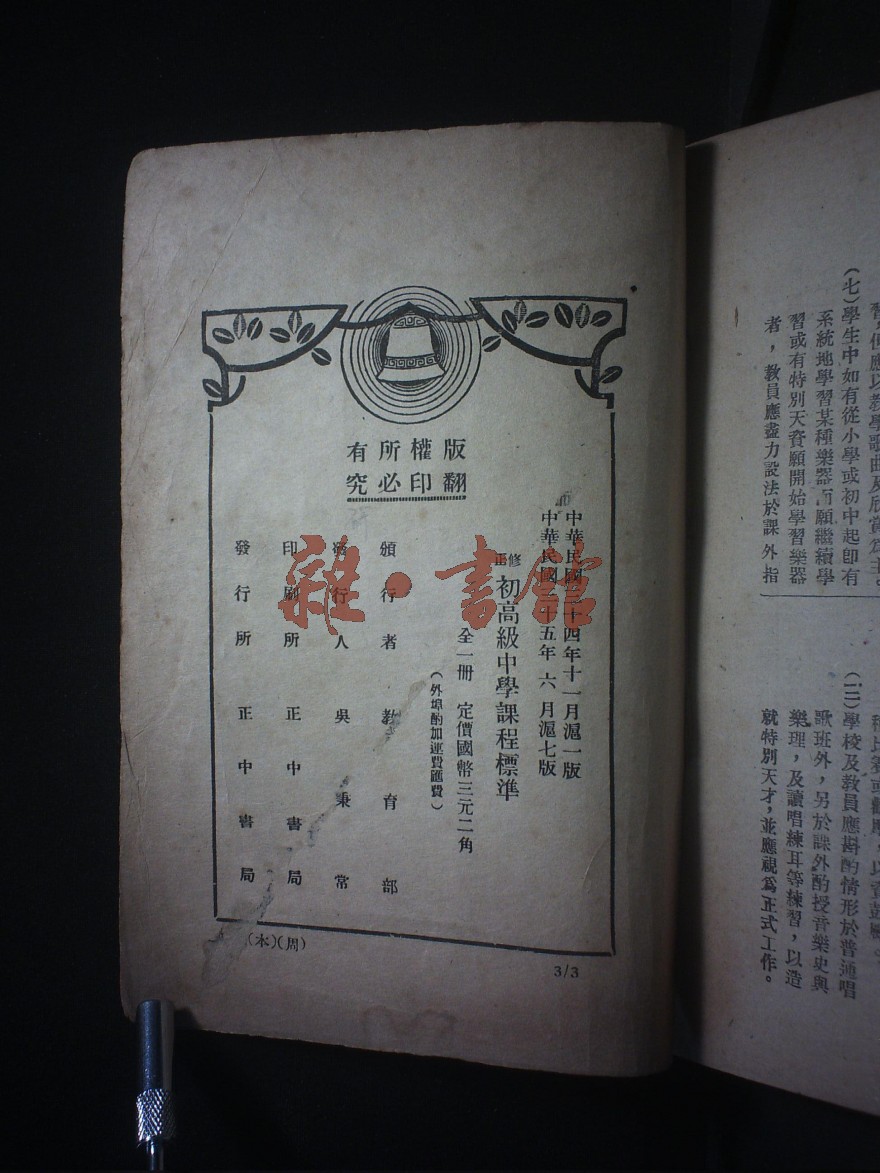 習，但應以教學歌曲及欣賞爲主。
（七）學生中如有從小學或初中起卽有
系統地學習某種樂器而願繼續學
習或有特別天資願開始學習樂器
者，教員應盡力設法於課外指
（二）學校及教員應斟酌情形於普通唱
歌班外，另於課外酌授音樂史與
樂理，及讀唱練耳等練習，以造
就特別天才，並應視爲正式工作。
版權所有
翻印必究
中華民國二十四年十一月滬一版
中華民國 十五年 六 月滬七版
修正 初高級中學課程標準
全一冊 定價國幣三元二角
（外埠酌加運費匯費）
頒行者 教育部
發行人 吳秉常
印刷所 正中書局
發行所 正中書局
（本）（周）
3/3
雜·書館